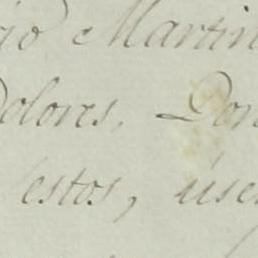 Martin
Dolores. Don
estos, use